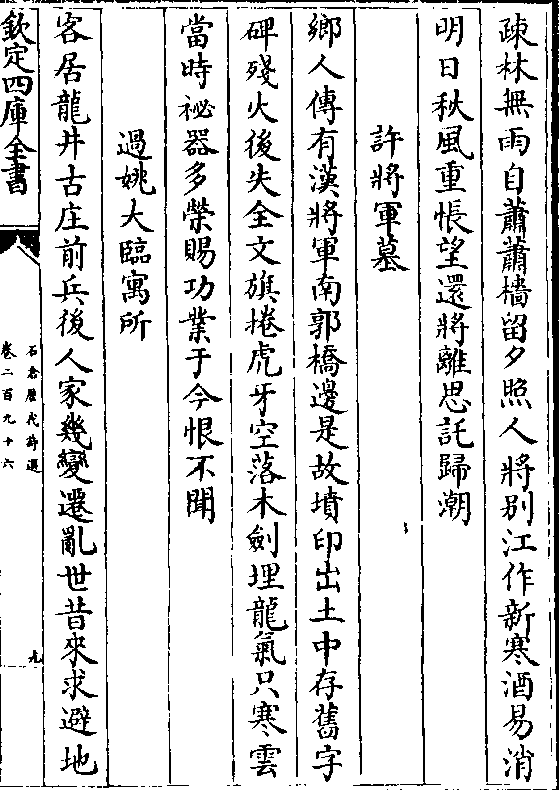 疎林無雨自蕭蕭檣留夕照人將别江作新寒酒易消
明日秋風重悵望還將離思託歸潮
許將軍墓
鄉人傳有漢將軍南郭橋邊是故墳印出土中存舊字
碑殘火後失全文旗捲虎牙空落木劍埋龍氣只寒雲
當時祕器多榮賜功業于今恨不聞
過姚大臨寓所
客居龍井古庄前兵後人家幾變遷亂世昔來求避地
欽定四庫全書
石倉歷代詩選
卷二百九十六
九